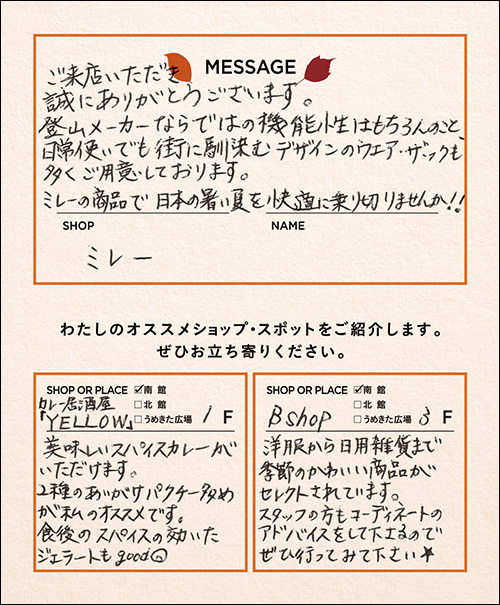 MESSAGE
ご来店いただき
誠にありがとうございます。
登山メーカーならではの機能性はもちろんのこと、
日常使いでも街に馴染むデザインのウエア・ザックも
多くご用意しております。
ミレーの商品で日本の暑い夏を快適に乗り切りませんか!!
SHOP NAME
ミレー
わたしのオススメショップ・スポットをご紹介します。
ぜひお立ち寄りください。
SHOP OR PLACE ☑南 館
□北 館
□うめきた広場
カレー居酒屋
「YELLOW」 1 F
美味しいスパイスカレーが
いただけます。
2種のあいがけパクチー多め
が私のオススメです。
食後のスパイスの効いた
ジェラートもgood
SHOP OR PLACE ☑南 館
□北 館
□うめきた広場
Bshop 3 F
洋服から日用雑貨まで
季節のかわいい商品が
セレクトされています。
スタッフの方もコーディネートの
アドバイスをして下さるので
ぜひ行ってみて下さい★